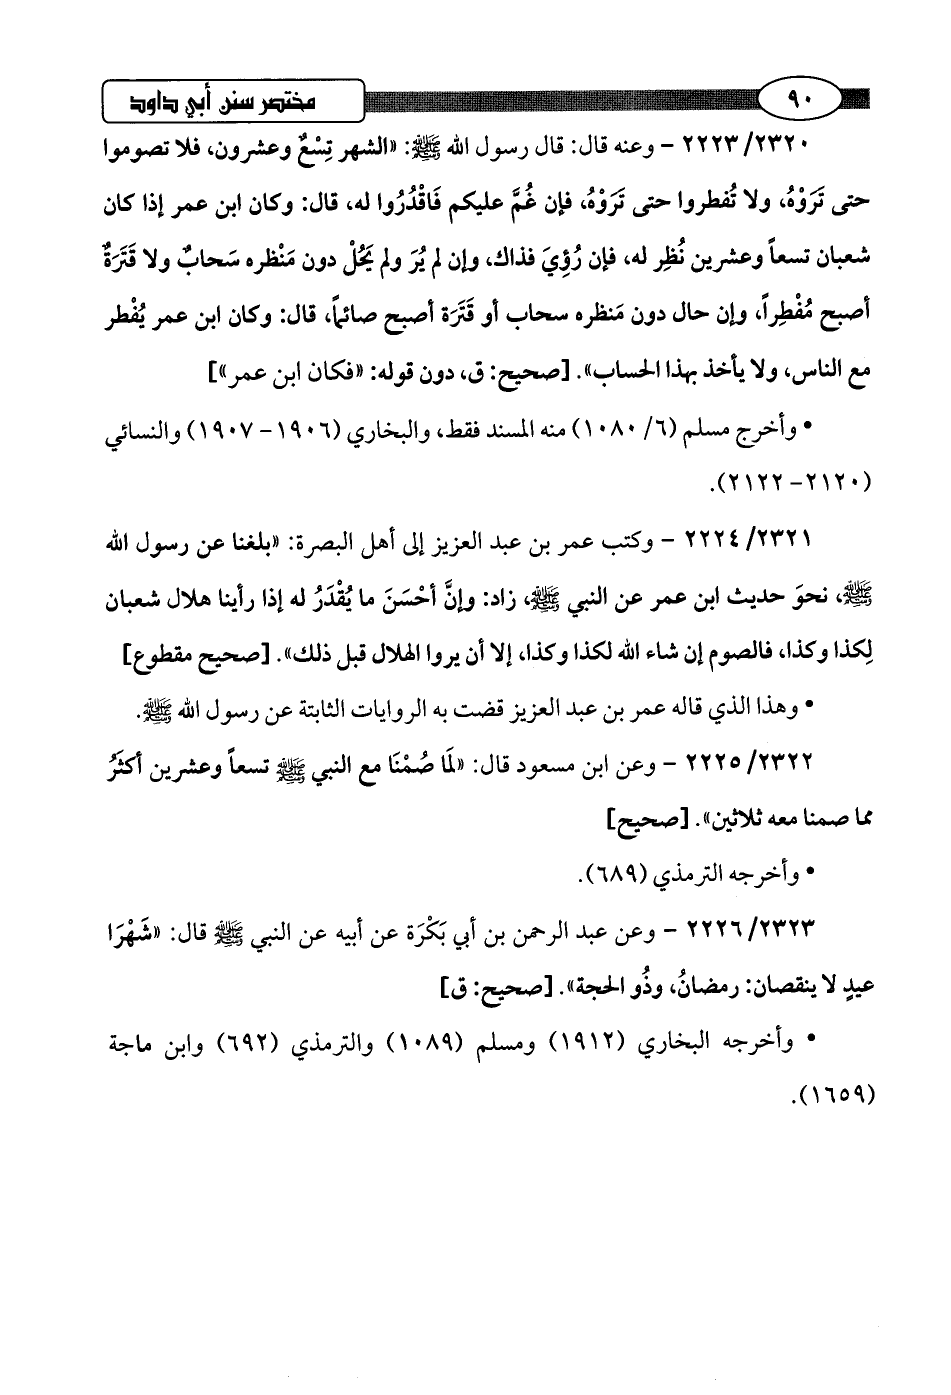 ٩٠ مختصر سنن أبي داود
٢٢٢٣/٢٣٢٠ – وعنه قال: قال رسول الله ﷺ: «الشهر تِسْعٌ وعشرون، فلا تصوموا
حتى تَرَوْهُ، ولا تُفطروا حتى تَرَوْهُ، فإن غُمَّ عليكم فَاقْدُرُوا له، قال: وكان ابن عمر إذا كان
شعبان تسعاً وعشرين نُظِر له، فإن رُؤِيَ فذاك، وإن لم يُرَ ولم يَحُلْ دون مَنْظره سَحابٌ ولا قَتَرَةٌ
أصبح مُفْطِراً، وإن حال دون مَنظره سحاب أو قَتَرَة أصبح صائماً، قال: وكان ابن عمر يُفْطر
مع الناس، ولا يأخذ بهذا الحساب». [صحيح: ق، دون قوله: «فكان ابن عمر»]
• وأخرج مسلم (٦/ ١٠٨٠) منه المسند فقط، والبخاري (١٩٠٦– ١٩٠٧) والنسائي
(٢١٢٠– ٢١٢٢).
٢٢٢٤/٢٣٢١ – وكتب عمر بن عبد العزيز إلى أهل البصرة: «بلغنا عن رسول الله
ﷺ، نحوَ حديث ابن عمر عن النبي ﷺ، زاد: وإنَّ أحْسَنَ ما يُقْدَرُ له إذا رأينا هلال شعبان
لِكذا وكذا، فالصوم إن شاء الله لكذا وكذا، إلا أن يروا الهلال قبل ذلك». [صحيح مقطوع]
• وهذا الذي قاله عمر بن عبد العزيز قضت به الروايات الثابتة عن رسول الله ﷺ.
٢٢٢٥/٢٣٢٢ – وعن ابن مسعود قال: «لَمَا صُمْنَا مع النبي ﷺ تسعاً وعشرين أكثَرُ
مما صمنا معه ثلاثين». [صحيح]
• وأخرجه الترمذي (٦٨٩).
٢٢٢٦/٢٣٢٣ – وعن عبد الرحمن بن أبي بَكْرَة عن أبيه عن النبي ﷺ قال: «شَهْرَا
عيدٍ لا ينقصان: رمضانُ، وذُو الحجة». [صحيح: ق]
• وأخرجه البخاري (١٩١٢) ومسلم (١٠٨٩) والترمذي (٦٩٢) وابن ماجة
(١٦٥٩).